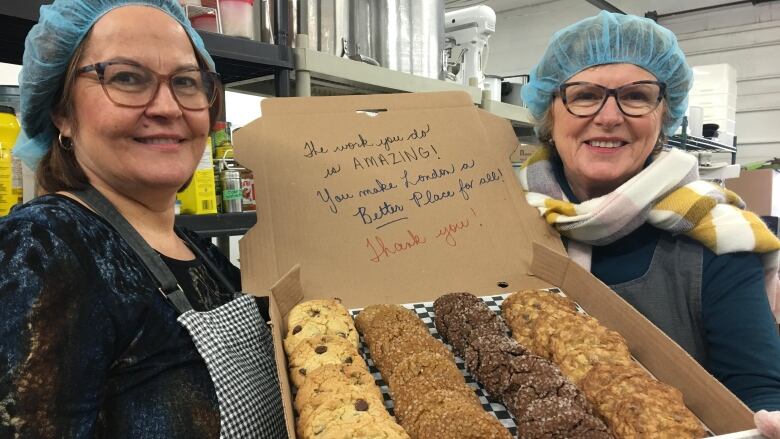 The work you do
is AMAZING!
You make London a
Better Place for all!
Thank you!